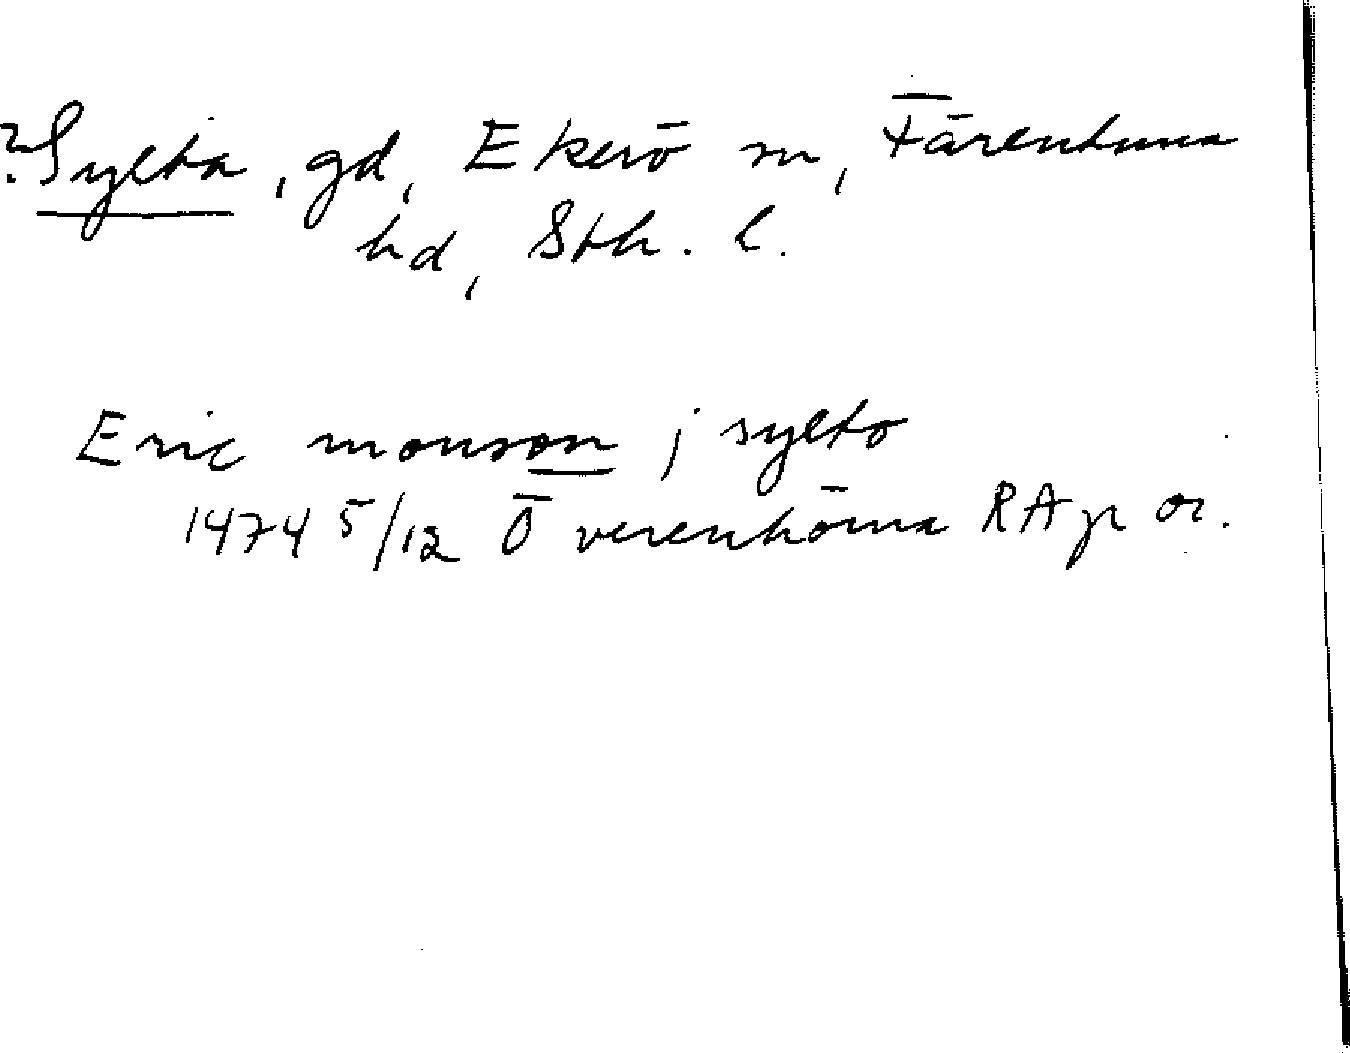 ? Sylta, gd, Ekerö sn, Färentuna
hd, Sth. l.
Eric monson j sylto
1474 5/12 Överenhörna RAp or.